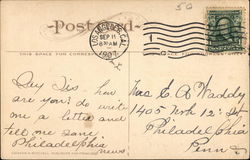 50
Post Card
LOS ANGELES, CAL.
SEP 11
8:30 AM
1907
THIS SPACE FOR CORRESPONDENCE
Dey Sis, how
are you? do write
me a letter and
tell me some
Philadelphia
news
Mrs C A Waddy
1405 Nth 12" St
Philadelphia
Penn